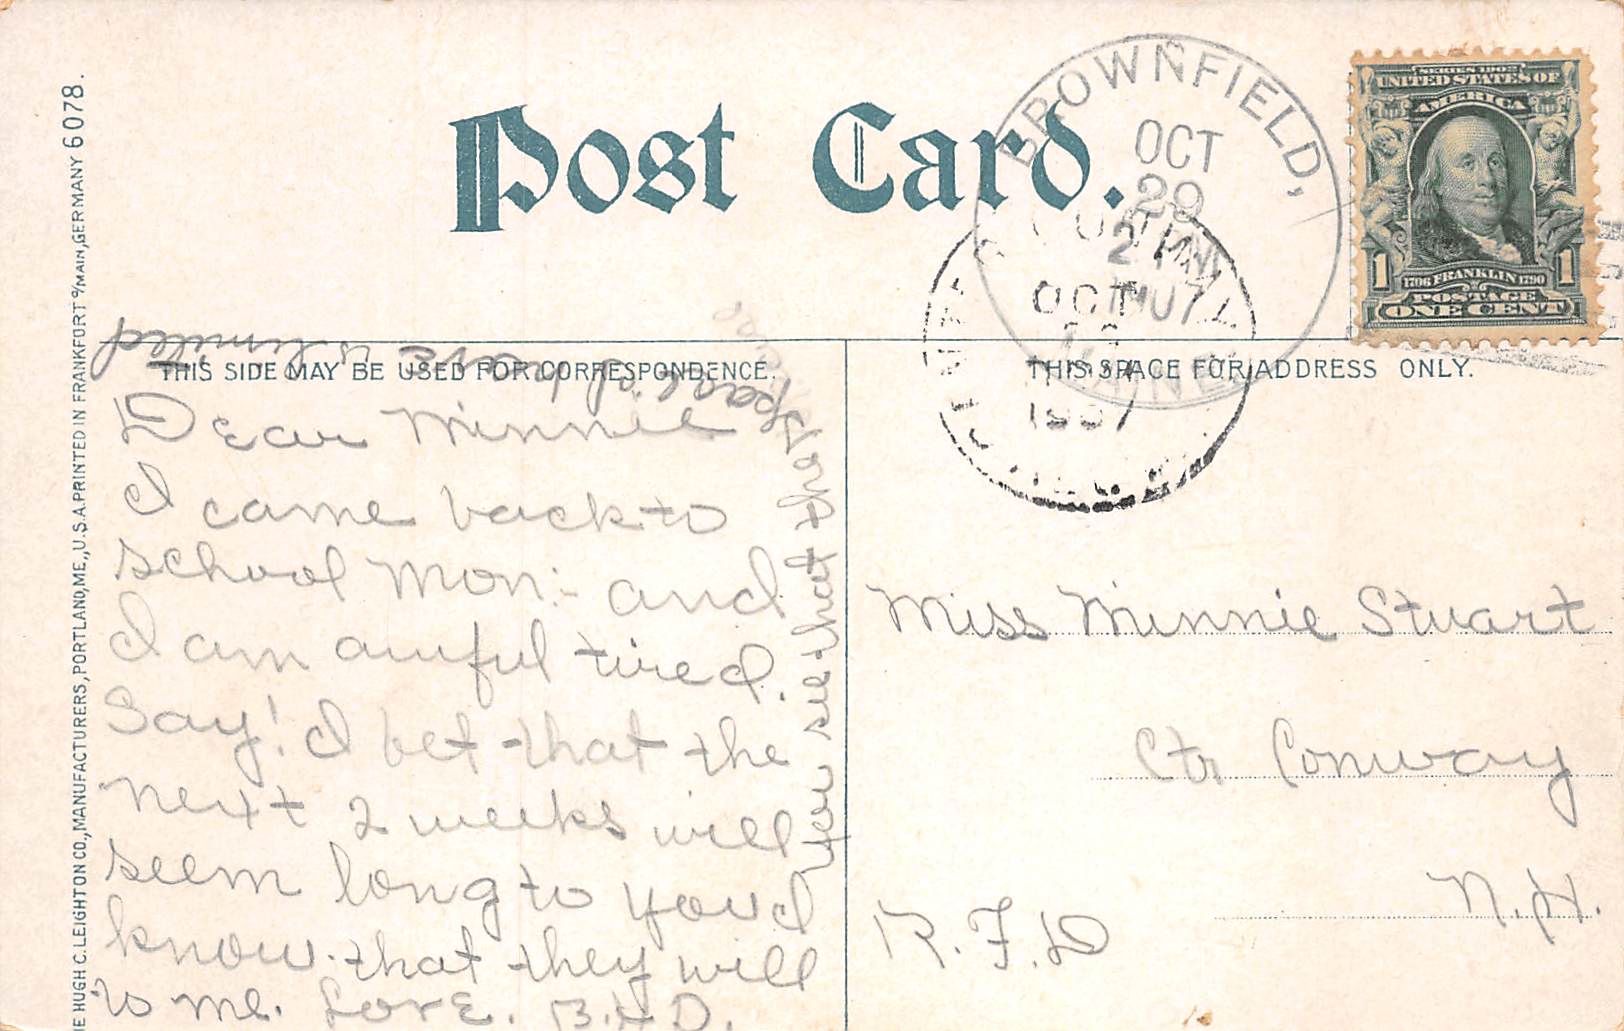 Post Card.
BROWNFIELD,
OCT
29
MAINE
CONWAY
OCT
1907
SERIES 1902
UNITED STATES OF
AMERICA
1706 FRANKLIN 1790
1 1
POSTAGE
ONE CENT
THIS SIDE MAY BE USED FOR CORRESPONDENCE.
THIS SPACE FOR ADDRESS ONLY.
Dear Minnie
I came back to
school Mon:- and
I am awful tired.
Say! I bet that the
next 2 weeks will
seem long to you I
know. that they will
to me. Love. B.H.D.
You see that the
space is
limited
Miss Minnie Stuart
Ctr Conway
N.H.
R.F.D
HE HUGH C. LEIGHTON CO., MANUFACTURERS, PORTLAND, ME., U.S.A. PRINTED IN FRANKFURT o/MAIN, GERMANY 6078.